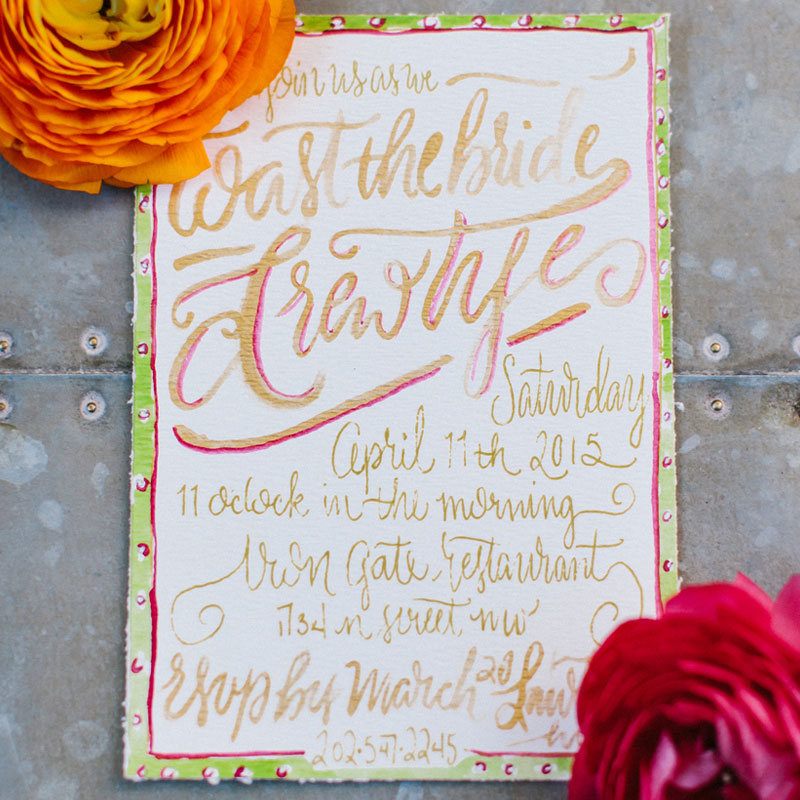 join us as we
toast the bride
Drew
Saturday
April 11th 2015
11 oclock in the morning
Iron Gate Restaurant
1734 n street nw
rsvp by March 20
202·547·2245